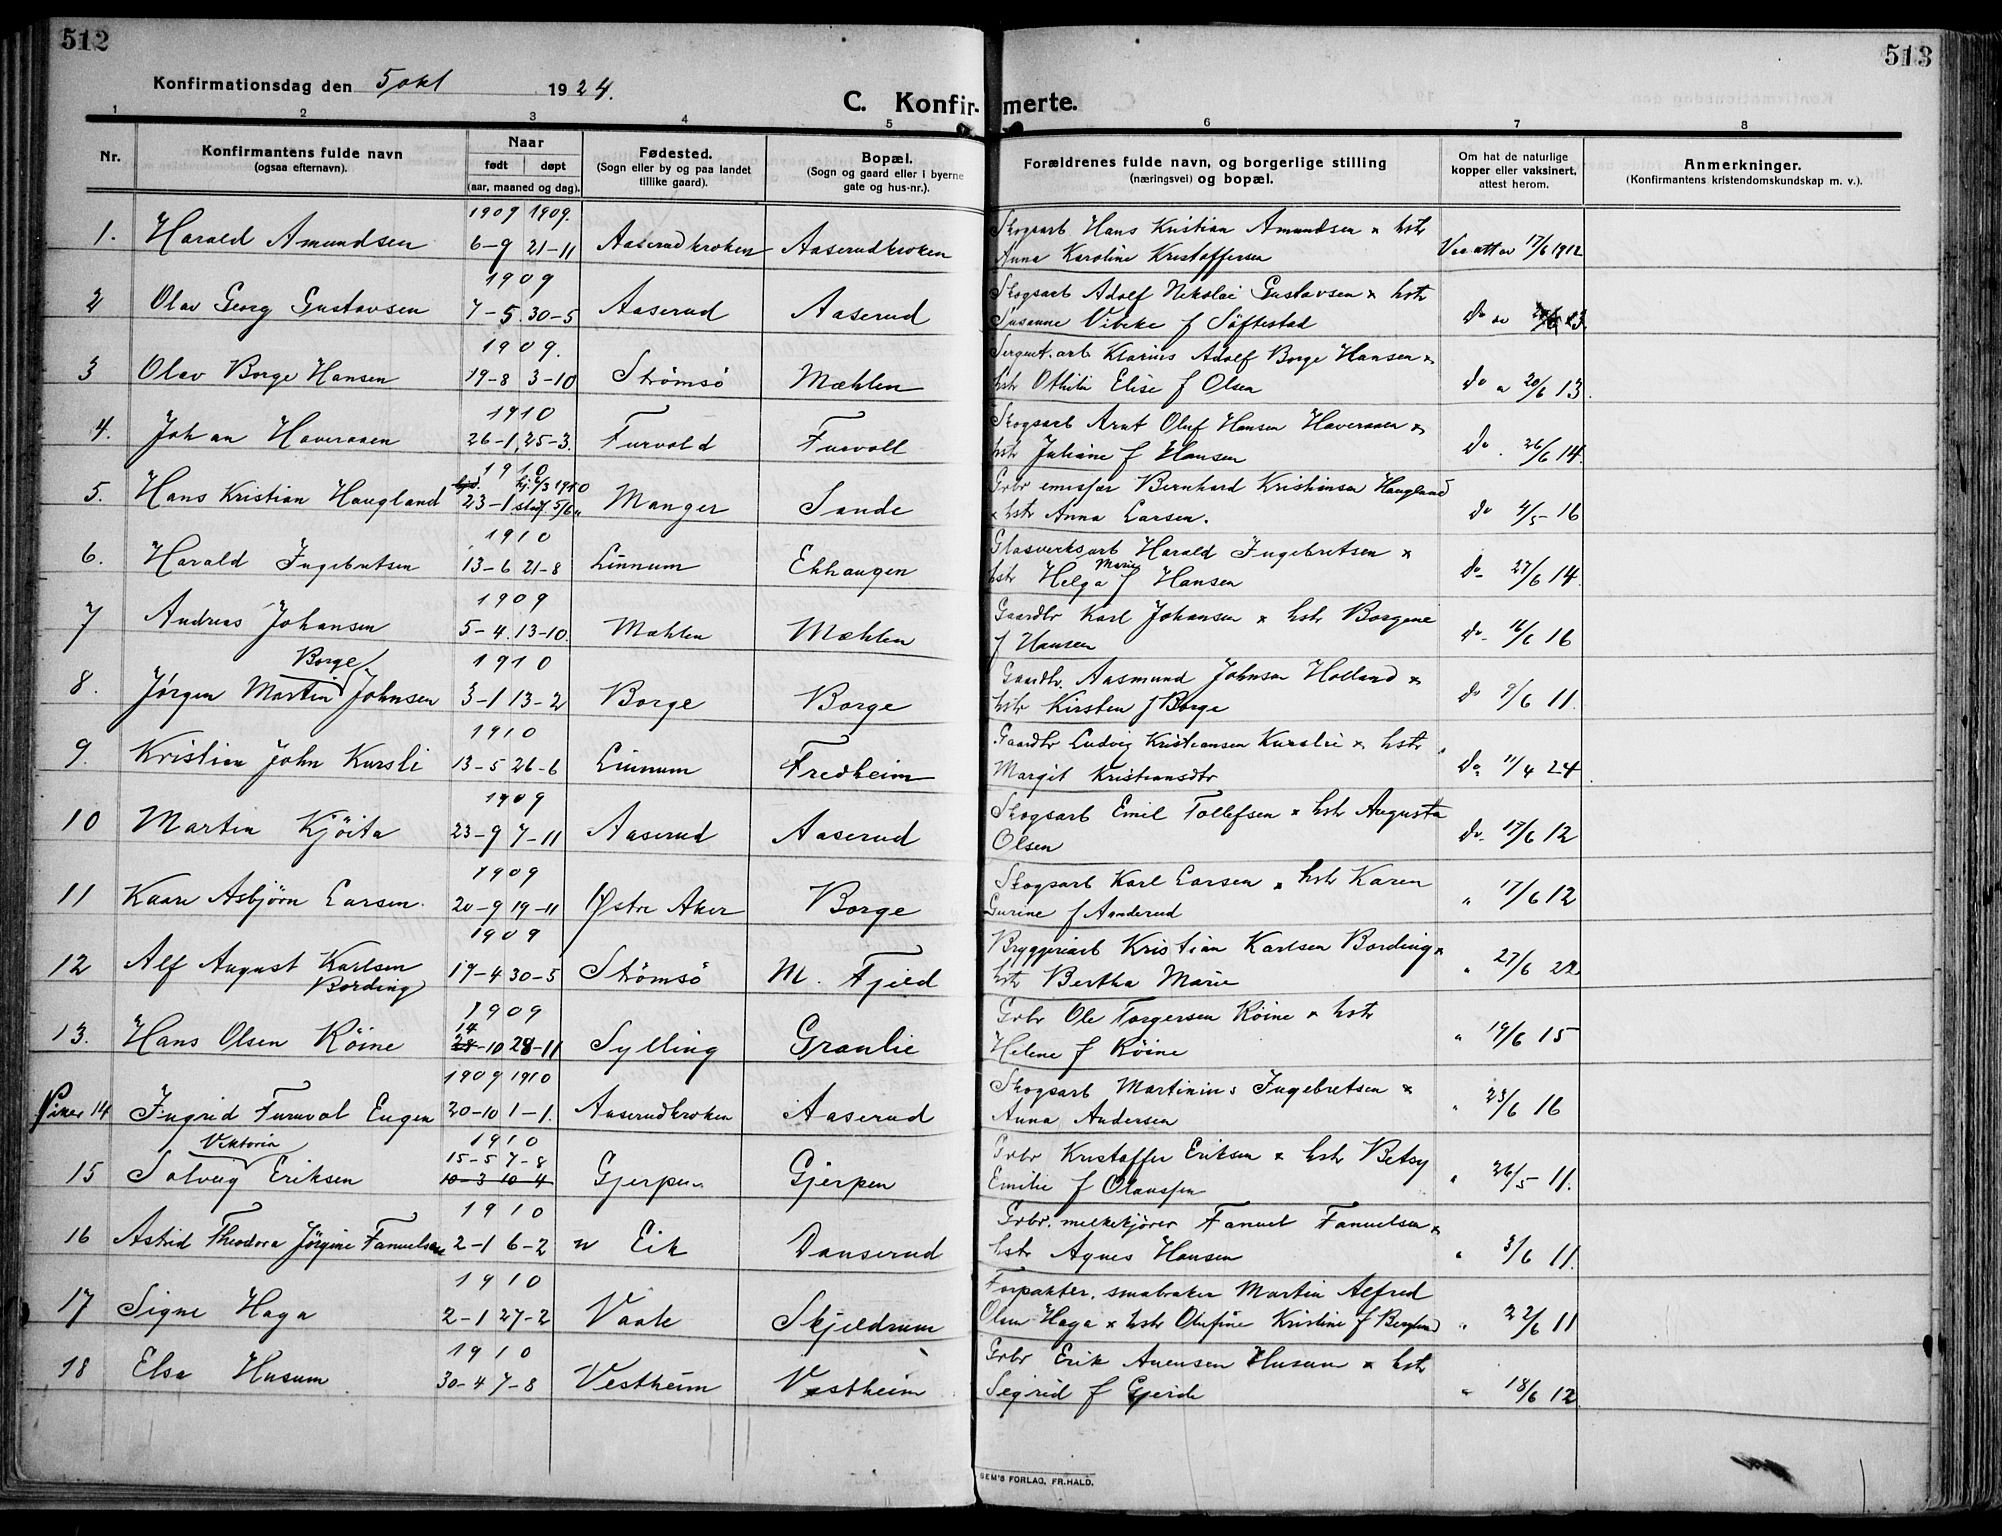 512
513
Konfirmationsdag den 5 okt 1924.
C. Konfirmerte.
1 2 3 4 5 6 7 8
Nr.
Konfirmantens fulde navn
(ogsaa efternavn).
Naar
født døpt
(aar, maaned og dag).
Fødested.
(Sogn eller by og paa landet
tillike gaard).
Bopæl.
(Sogn og gaard eller i byerne
gate og hus-nr.).
Forældrenes fulde navn, og borgerlige stilling
(næringsvei) og bopæl.
Om hat de naturlige
kopper eller vaksinert,
attest herom.
Anmerkninger.
(Konfirmantens kristendomskundskap m. v.).
1909 1909. Skogsarb Hans Kristian Amundsen x hstr
1. Harald Amundsen 6-9 21-11 Aaserudkroken Aaserudkroken Anna Karoline Kristoffersen Vac att av 17/6 1912
1909 Skogsarb Adolf Nikolai Gustavsen x hstr
2 Olav Georg Gustavsen 7-5. 30-5 Aaserud Aaserud Susanne Vibeke f Söftestad Do 13
1909. Sergent. arb Klarius Adolf Borge Hansen x
3 Olav Borge Hansen 19-8 3-10 Strømsö Mæhlen hstr Othilie Elise f Olsen do 20/6 13.
1910 Skogsarb Arnt Oluf Hansen Haveraaen x
4. Johan Haveraaen 26-1. 25-3. Furvold Furvoll hstr Juliane f Hansen do. 26/6 14.
1910 hj. 6/3 1910 Grbr emisfær Bernhard Kristiansen Haugland
5. Hans Kristian Haugland 23-1 stadf. 5/6 Manger Sande x hstr Anna Larsen. do 4/5-16
1910 Glasverksarb Harald Ingebretsen x
6. Harald Ingebretsen 13-6 21-8 Linnum Ekhaugen hstr Helga Marie f Hansen do- 27/6 14.
1909 Gaardbr Karl Johansen x hstr Borgine
7 Andreas Johansen 5-4. 13-10. Mæhlen Mæhlen f Hansen do- 16/6 16
Borge 1910 Gaardbr. Aasmund Johnsen Holland x
8. Jørgen Martin Johnsen 3-1 13-2 Borge Borge hstr Kirsten f Borge do 9/6 11.
1910 Gaardbr Ludvig Kristiansen Kursli x hstr
9. Kristian John Kursli 13-5 26-6 Linnum Fredheim Margit Kristiansdtr Do. 11/4 24
1909 Skogsarb Emil Tollefsen x hstr Augusta
10 Martin Kjöita 23-9 7-11 Aaserud Aaserud Olsen do. 17/6 12
1909 Skogsarb Karl Larsen x hstr Karen
11 Kaare Asbjørn Larsen. 20-9 19-11 Østre Aker Borge Gurine f Aanderud " 17/6 12
1909 Bryggeriarb Kristian Karlsen Bording x
12 Alf August Karlsen Bording 17-4 30-5 Strömsö M. Fjeld hstr Bertha Marie " 27/6 22
1909 Grbr Ole Torgersen Röine x hstr
13. Hans Olsen Röine 14 24-10 28-11 Sylling Granlie Helene f Röine " 19/6 15
1909 1910 Skogsarb Martinius Ingebretsen x
Piker 14 Ingrid Furuvol Eugen 20-10 1-1. Aaserudkroken Aaserud Anna Andersen " 23/6 16
Viktoria 1910 Grbr Kristoffer Eriksen x hstr Betsy
15 Solveig Eriksen 15-5 7-8 10-3 10-4 Gjerpen Gjerpen Emilie f Olaussen " 26/5-11.
1910 Grbr. melkekjører Fanuel Fanuelsen x
16 Astrid Theodora Jörgine Fanuelsen 2-1 6-2 N Eik Danserud hstr Agnes Hansen " 3/6 11.
1910 Forpakter, smabruker Martin Alfred
17 Signe Haga 2-1 27-2 Vaale Skjeldrum Olsen Haga x hstr Olufine Kristine f Berglund " 22/6 11
1910 Grbr Erik Avensen Husum x hstr
18 Elsa Husum 30-4 7-8 Vestheim Vestheim Segrid f Gjerde " 18/6 12.
SEM'S FORLAG, FR.HALD.